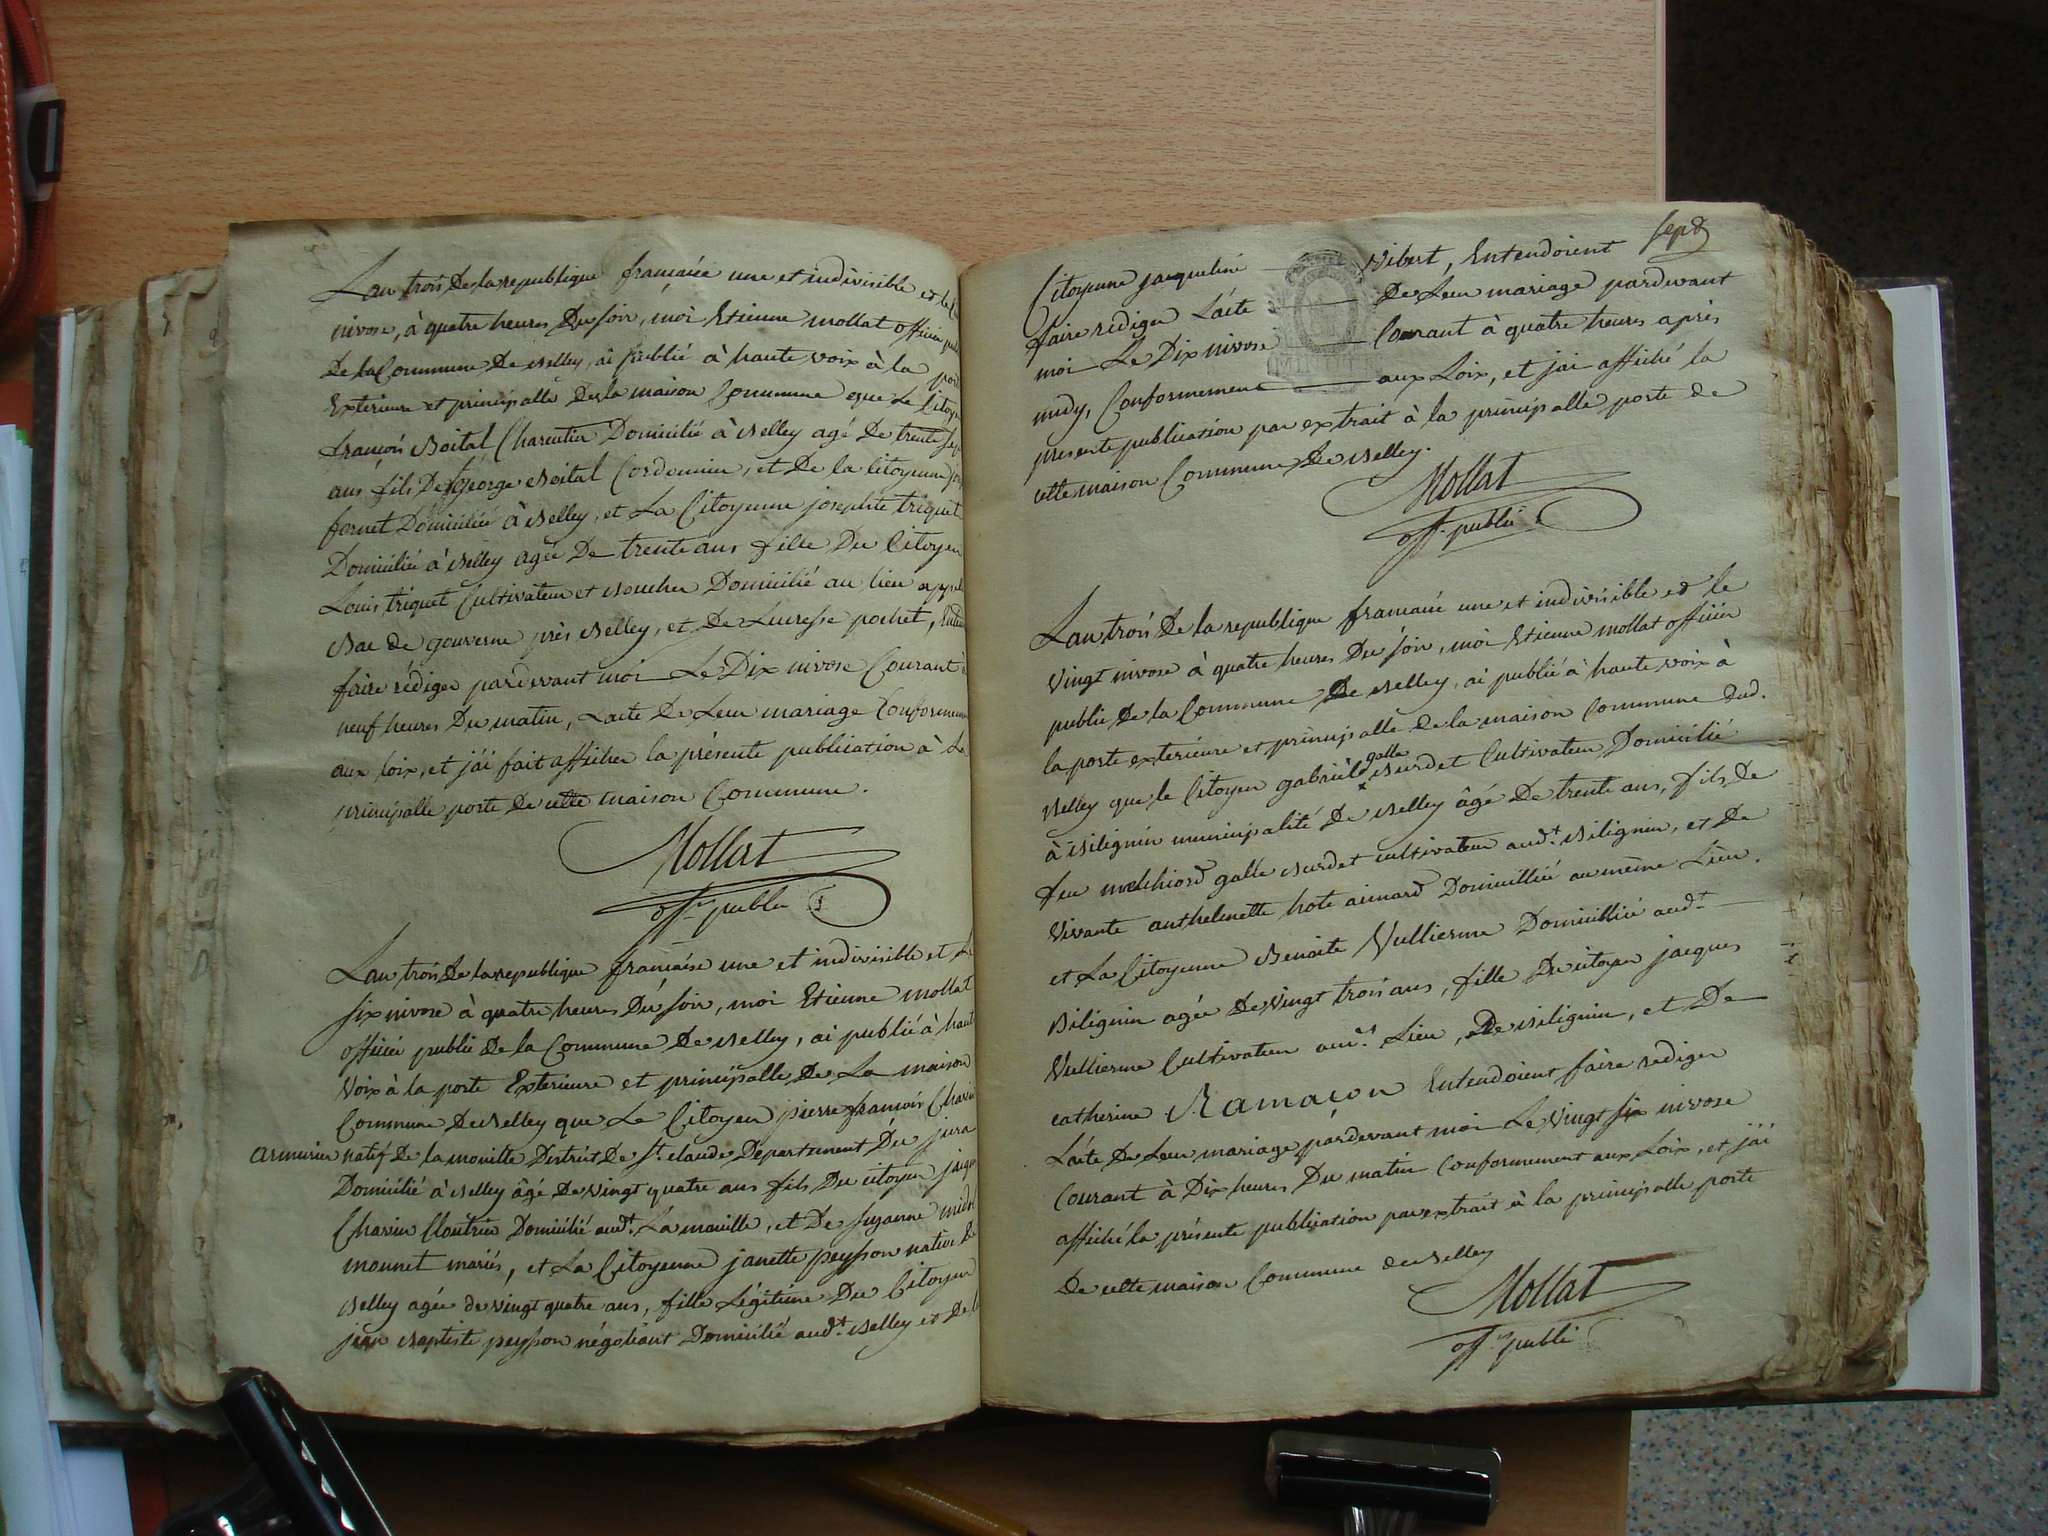 L'an trois De la republique francaise une et indivisible et le
nivose, à quatre heures Du soir, moi Etienne mollat officier
De la Commune De Belley, ai publié à haute voix à la
Exterieure et principalle De la maison Commune que Le Citoyen
françois Boital Charentier Domicilié à Belley agé De trente sept
ans fils De George Boital Cordonnier, et De la Citoyenne
fornet Domiciliée à Belley, et La Citoyenne josephte triquet
Domiciliée à Belley agée De trente ans fille Du Citoyen
Louis triquet Cultivateur et Boucher Domicilié au lieu appel
Bac de gouverne près Belley, et De Lucresse pochet,
faire rédiger pardevant moi Le Dix nivose Courant à
neuf heures Du matin, L'acte De Leur mariage Conformement
aux loix, et j'ai fait afficher la présente publication à La
principalle porte De cette maison Commune.
Mollat
off. public
L'an trois De la republique francaise une et indivisible et Le
six nivose à quatre heures Du soir, moi Etienne mollat
officier public De la Commune De Belley, ai publié à haute
Voix à la porte Exterieure et principalle De La maison
Commune De Belley que Le Citoyen pierre françois Chavin
armurier natif De la mouille District De St. claude Département Du jura
Domicilié à Belley âgé De vingt quatre ans fils Du citoyen jacques
Chavin Cloutrier Domicilié aud.t La mouille, et De suzanne
monnet mariés, et La Citoyenne janette peysson native De
Belley agée de vingt quatre ans, fille Légitime Du Citoyen
jean Baptiste peysson négotiant Domicilié aud.t Belley et De la
sept
Citoyenne jacqueline Vibert, Entendoient
faire rédiger L'acte De Leur mariage pardevant
moi Le Dix nivose Courant à quatre heures après
midy, Conformement aux Loix, et j'ai affiché la
presente publication par extrait à la principalle porte de
cette maison Commune De Belley.
Mollat
off. public
L'an trois De la republique francaise une et indivisible et le
vingt nivose à quatre heures Du soir, moi Etienne mollat officier
public De la Commune De Belley, ai publié à haute voix à
la porte exterieure et principalle de la maison Commune dud.
Belley que le Citoyen gabriel galle Burdet Cultivateur Domicilié
à Bilignin municipalité De Belley âgé De trente ans, fils De
feu melchiord galle Burdet cultivateur aud.t Bilignin, et De
Vivante anthelmette hote aimard Domicilliée au même Lieu.
et La Citoyenne Benoite Vullierme Domicilliée aud.t
Bilignin agée De vingt trois ans, fille Du citoyen jacques
Vullierme Cultivateur aud.t Lieu, De Bilignin, et De
catherine Ramaçon Entendoient faire rediger
L'acte De Leur mariage pardevant moi Le vingt six nivose
Courant à Dix heures Du matin Conformement aux Loix, et j'ai
affiché la présente publication par extrait à la principalle porte
De cette maison Commune de Belley
Mollat
off. public